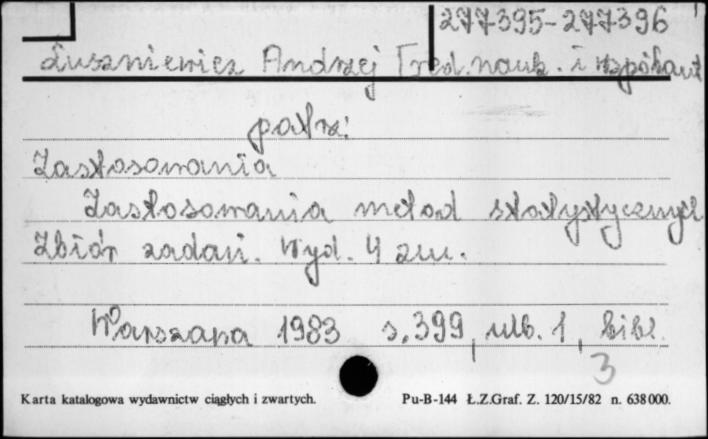 277395-277396
Łuszniewicz Andrzej [red. nauk. i współaut
patrz:
Zastosowania
Zastosowania metod statystycznych
Zbiór zadań. Wyd. 4 zm.
Warszawa 1983 s. 399, nlb. 1, bibl.
3
Karta katalogowa wydawnictw ciągłych i zwartych. Pu-B-144 Ł.Z.Graf. Z. 120/15/82 n. 638000.